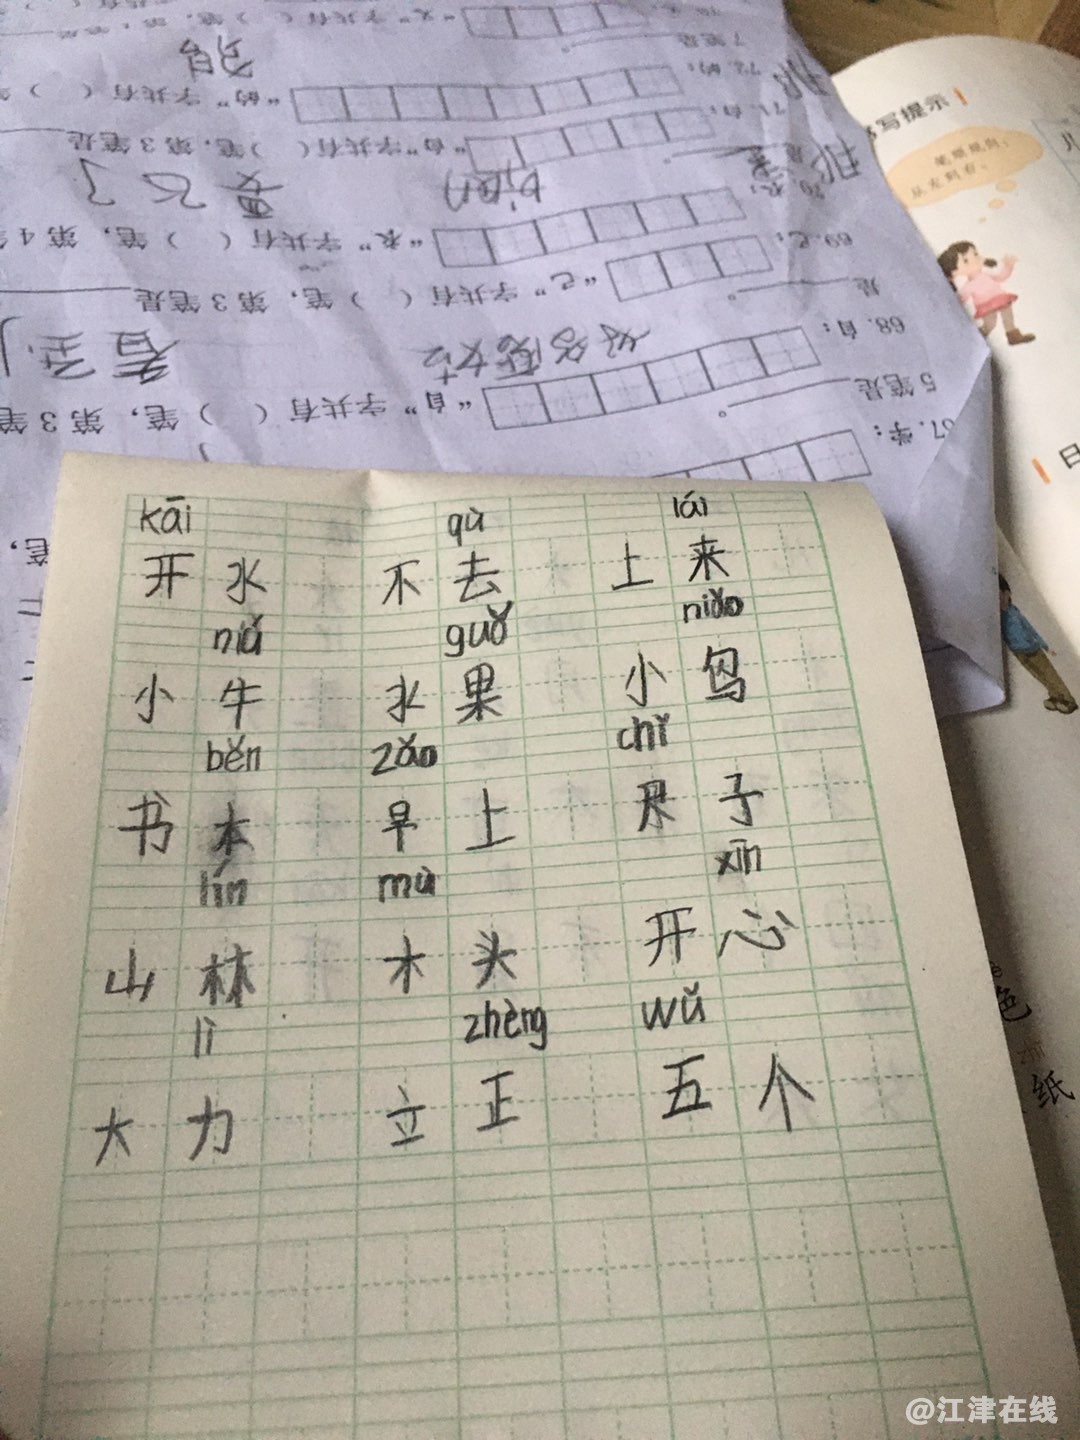 7笔是
72.的: "的"字共有( )笔,
71.自: "自"字共有( )笔,第3笔是
70.衣: "衣"字共有( )笔,第4笔
bian
69.己: "己"字共有( )笔,第3笔是
是
68.自: "自"字共有( )笔,第3笔
5笔是
67.学:
书写提示
笔顺规则:
从左到右。
儿
日
色
纸
kāi qù lái
开水 不去 上来
niú guǒ niǎo
小牛 水果 小鸟
běn zǎo chǐ
书本 早上 尺子
lín mù xīn
山林 木头 开心
lì zhèng wǔ
大力 立正 五个
@江津在线